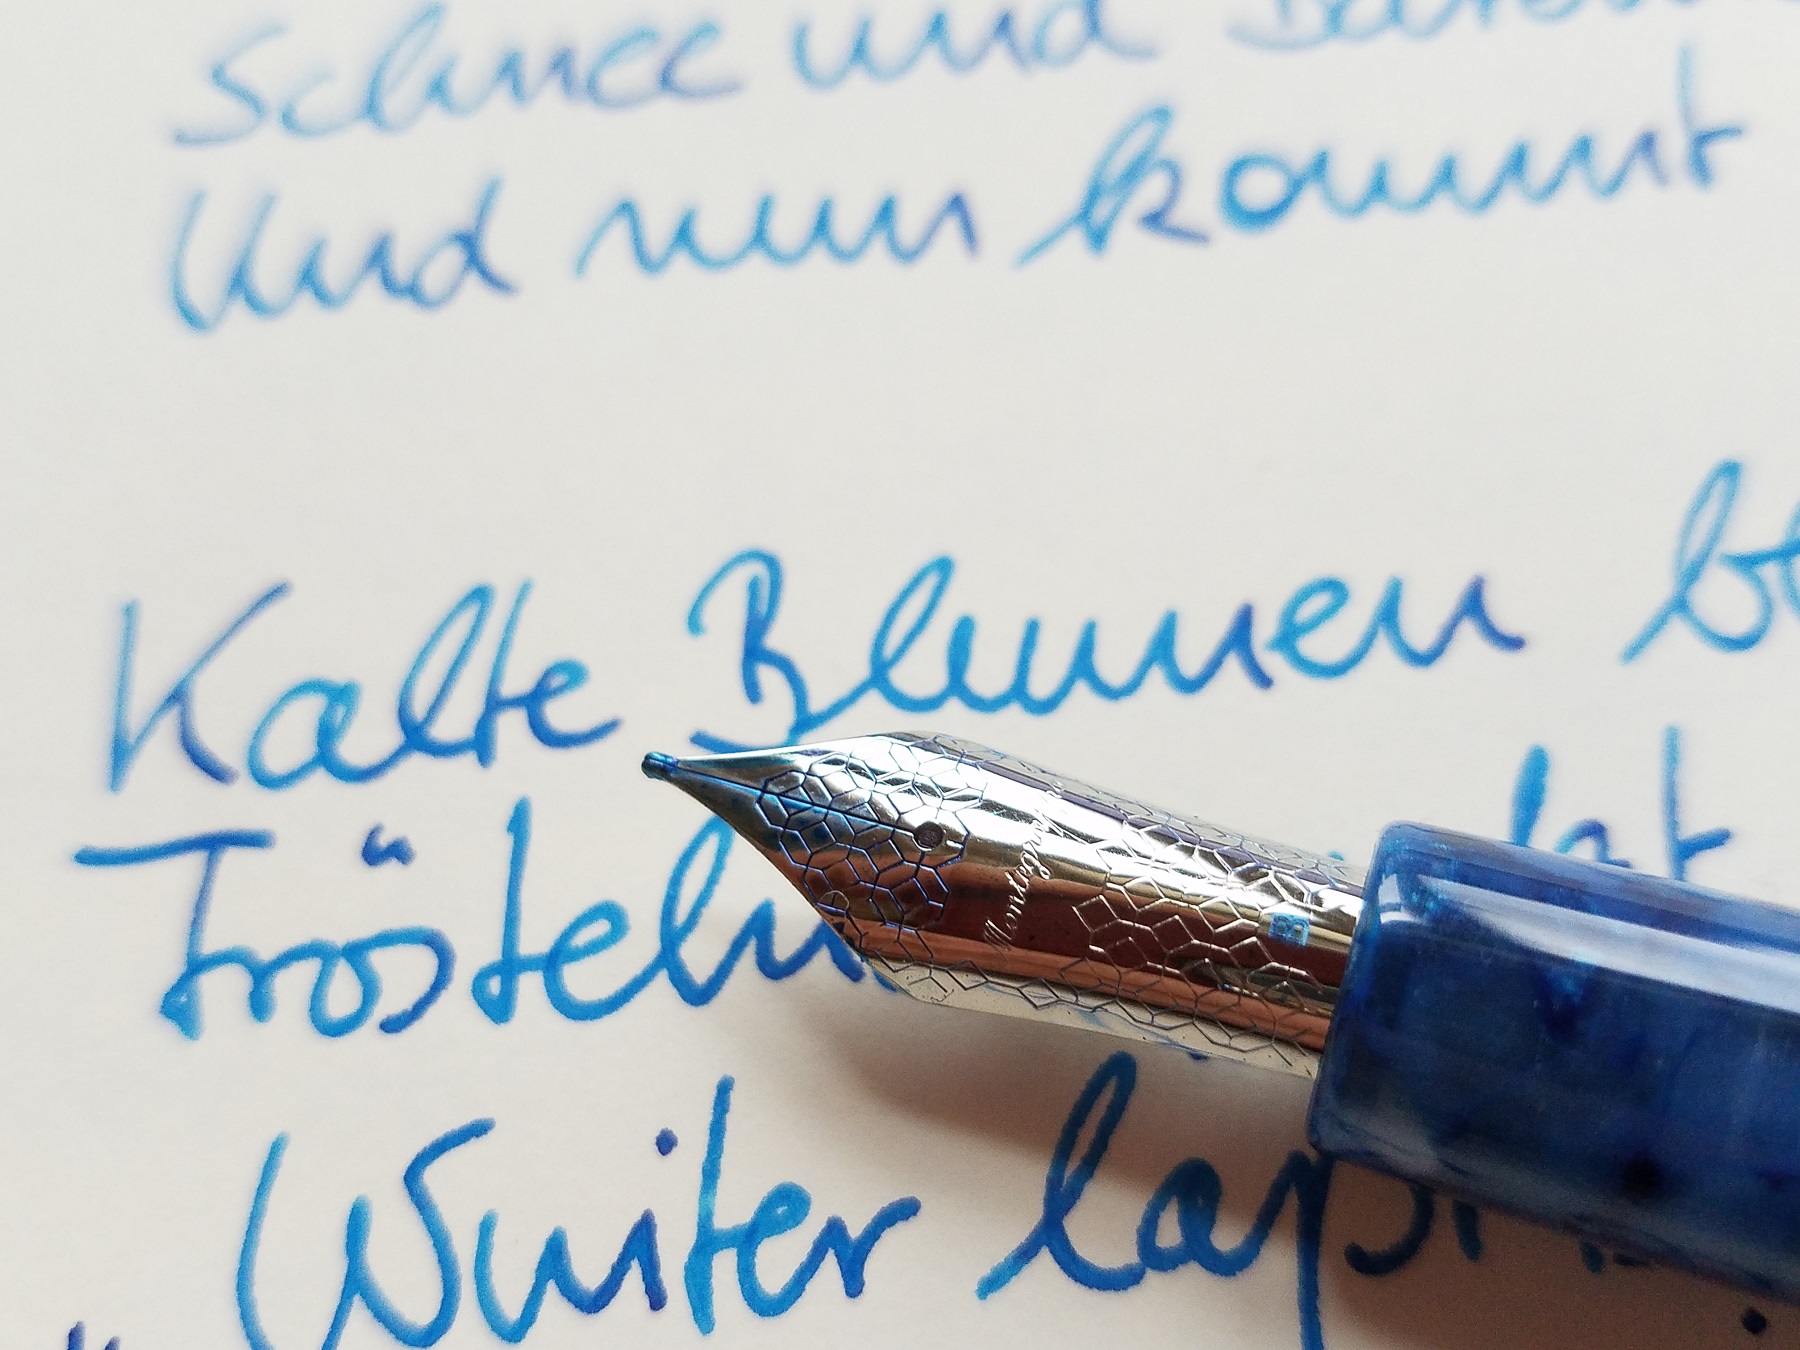 Schnee und
Und nun kommt
Kalte Blumen
Trösteln
Winter
Montegrappa
B